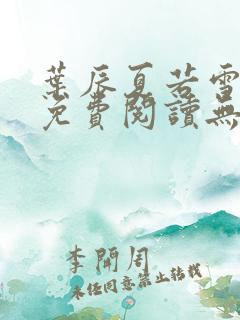 葉辰夏若雪
免費閱讀無
李開周
未經同意禁止轉載